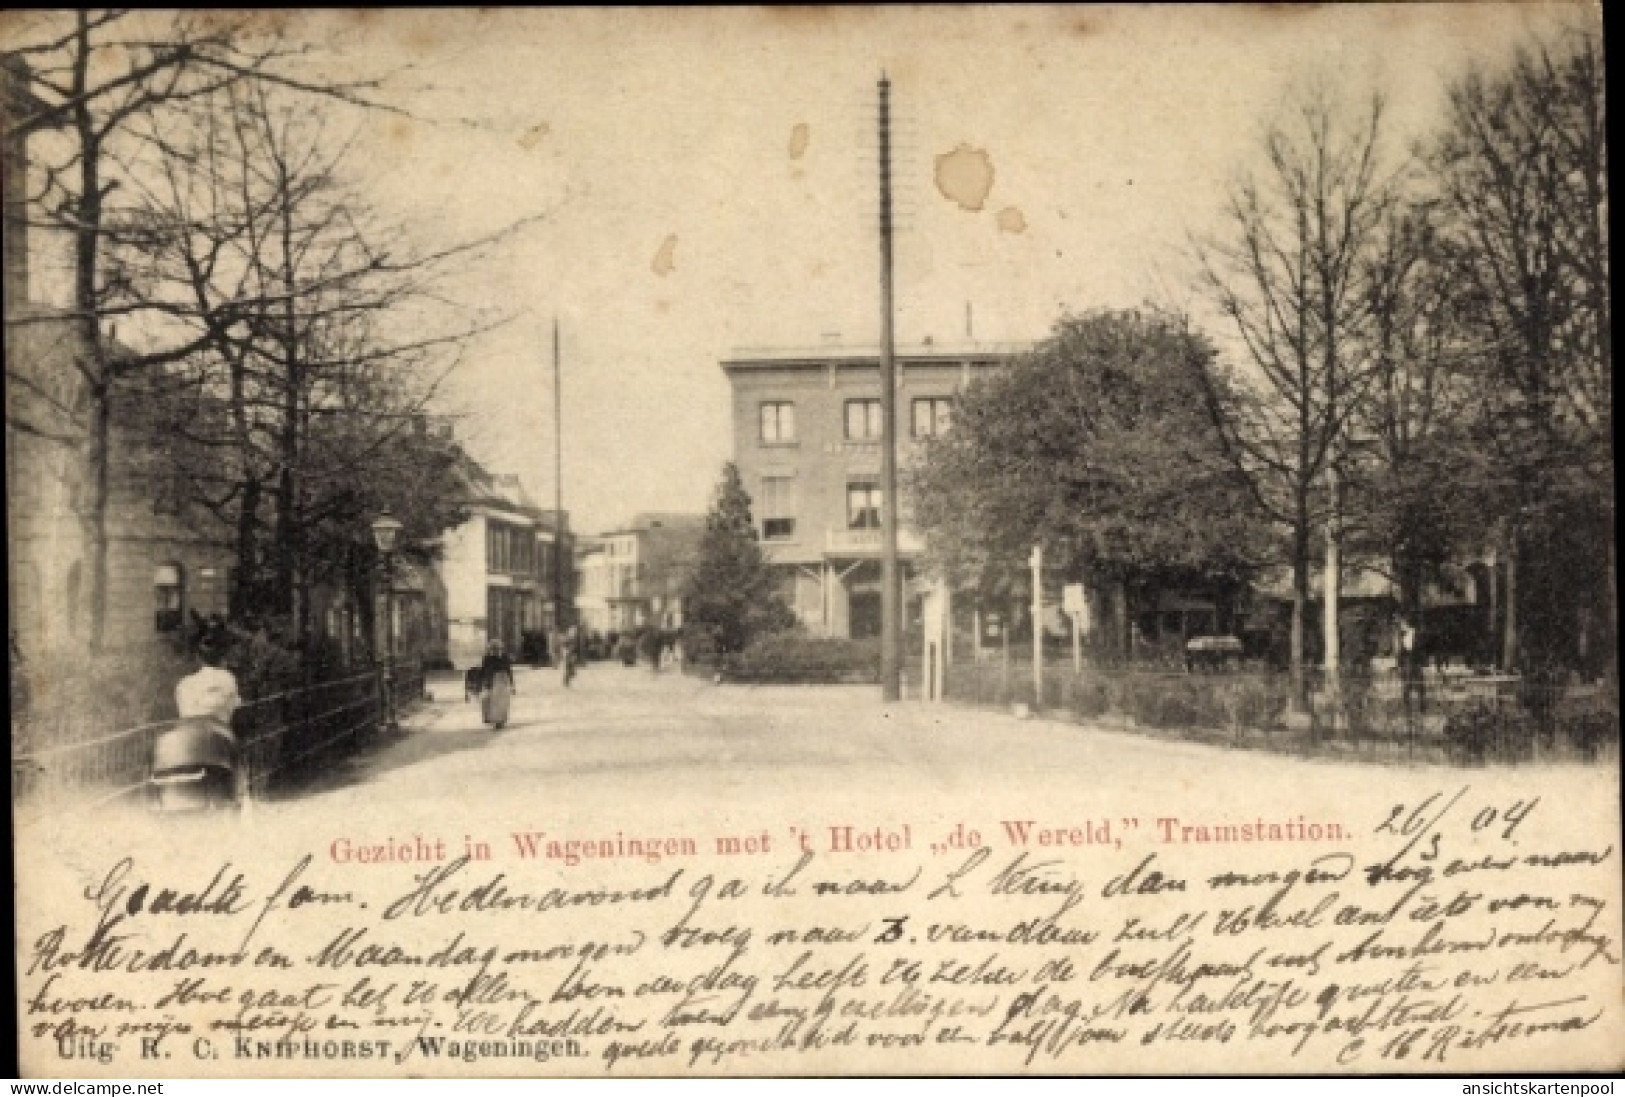 Gezicht in Wageningen met 't Hotel „de Wereld,” Tramstation.
26/3 04
Geachte fam. Hedenavond ga ik naar L terug dan morgen nog even naar
Rotterdam en Maandagmorgen weer naar Z. vandaar zult U wel iets van mij
hooren. Hoe gaat het U allen, Donderdag heeft U zeker de briefkaart uit Arnhem ontvangen
van mijn meisje en mij. We hadden een gezelligen dag. Na hartelijke groeten en een
goede gezondheid voor een half jaar steeds hoogachtend.
Ritsema
Uitg R. C. KNIPHORST, Wageningen.
delcampe.net
ansichtskartenpool